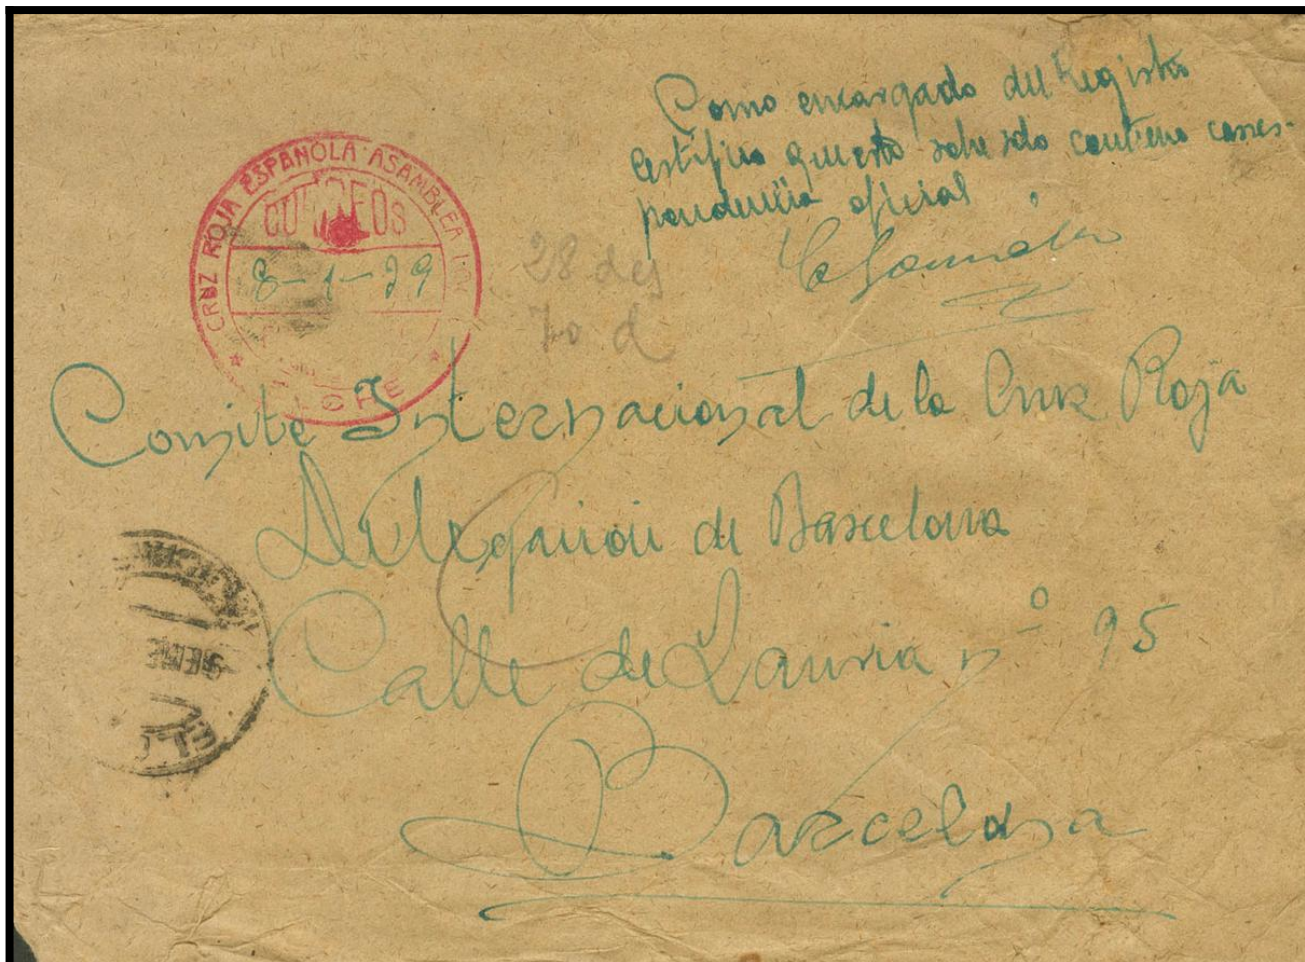 Como encargado del Registro
certifico que este sobre solo contiene corres-
pondencia oficial
CRUZ ROJA ESPAÑOLA ASAMBLEA
CORREOS
8-1-39
28 des
70 d
Comité Internacional de la Cruz Roja
Delegación de Barcelona
Calle de Lauria nº 95
Barcelona